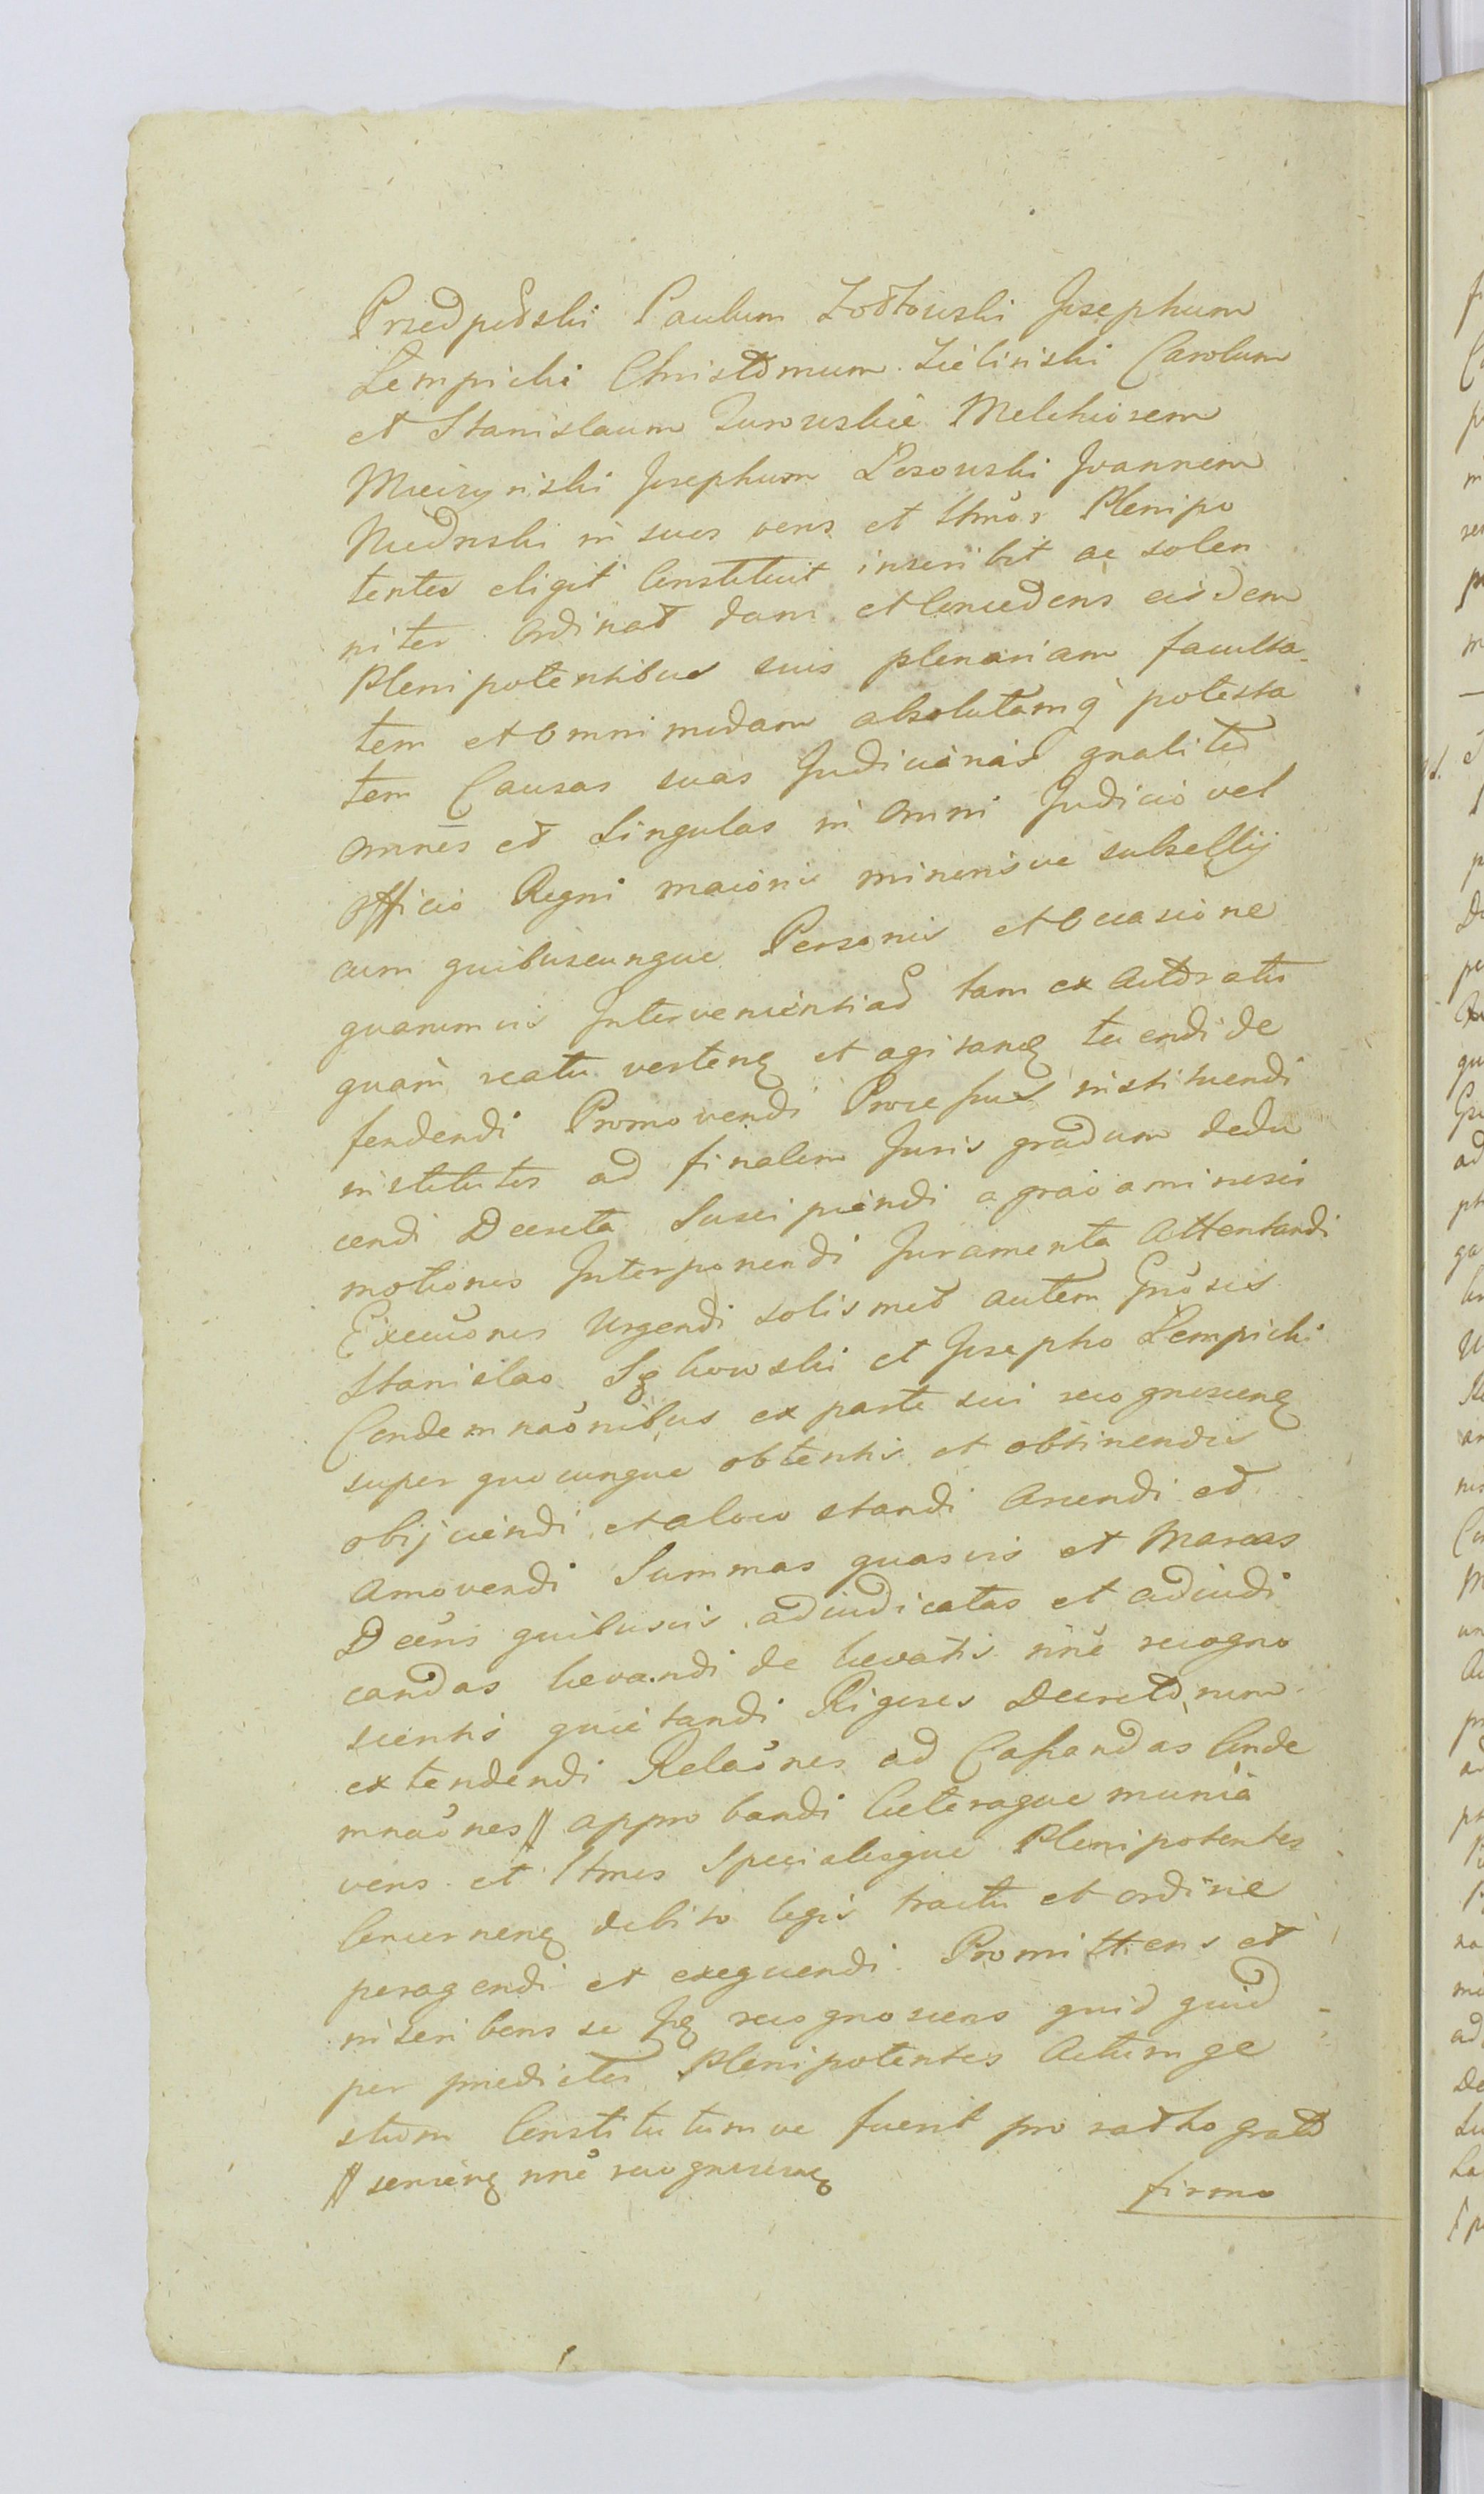 Przedpełski Paulum Zołtowski Josephum
Lempicki Christomum Zieliński Carolum
et Stanislaum Zurowskie Melchiorem
Mieczyński Josephum Losowski Joannem
in suos veros et ltmõs Plenipo
tentes eligit Constituit inscribit ac solen
niter Ordinat dans et Concedens eisdem
Plenipotentibus suis plenariam faculta-
tem et Omnimodam absolutamq̀ potesta
tem Causas suas Judiciarias gnaliter
omnes et Singulas in Omni Judicio vel
Officio Regni maioris minorisve subsellij
cum quibuscunque Personis et Occasione
quarumvis Intervenientias tam ex Actoratu
quam reatu verteñ et agitanđ tuendi de
fendendi Promovendi Processus instituendi
institutos ad finalem Juris gradum dedu
cendi Decreta Suscipiendi a gravaminosis
motiones Interponendi Juramenta Attentandi
Execuõnes Urgendi solismet autem Gnõsis
Stanislao et Josepho Lempicki
Condemnaõnibus ex parte sui recognosceñ
super quocunque obtentis et obtinendis
obijciendi et a loco standi Arcendi et
Amovendi Summas quasvis et Marcas
Decris quibusvis adiudicatas et adiudi
candas levandi de levatis nñe recogno
scentis quietandi Rigores Decretorum
extendendi Relaõnes ad Cassandas Conde
mnaõnes // approbandi Ceteraque munia
veros et ltmos Specialesque Plenipotentes
Concerneñ debito legis tractu et ordine
peragendi et exequendi. Promittens et
inscribens se recognoscens quid quid -
per predictos Plenipotentes Actum ge
stum Constitutumve fuerit pro ratho grato
// servieñ nñe recognosceñ
firmo